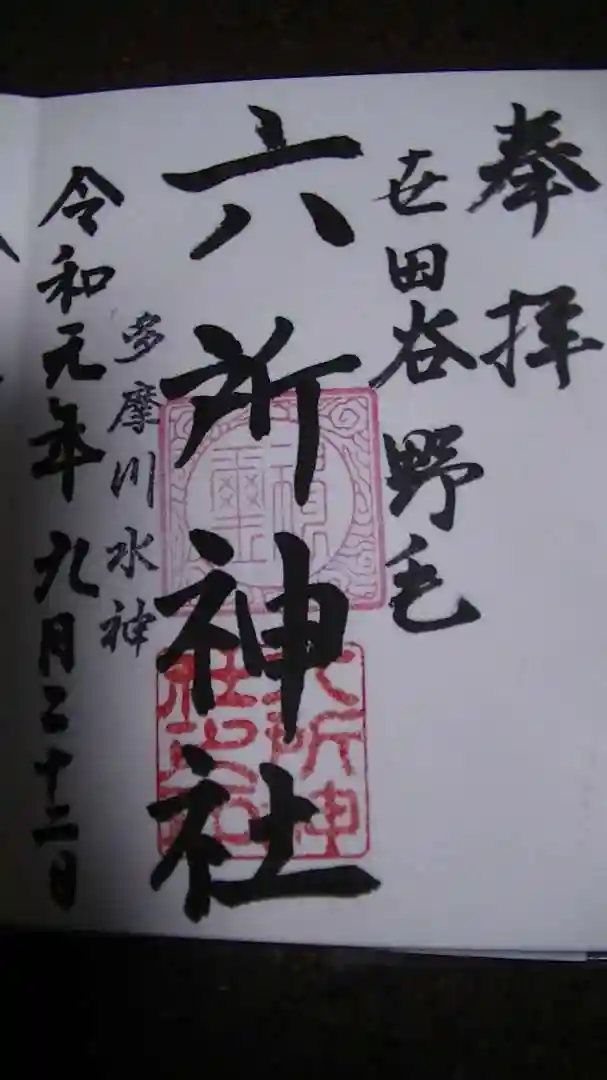 奉拝
世田谷 野毛
六所神社
多摩川水神
令和元年 九月二十二日
神璽
六所神社之印